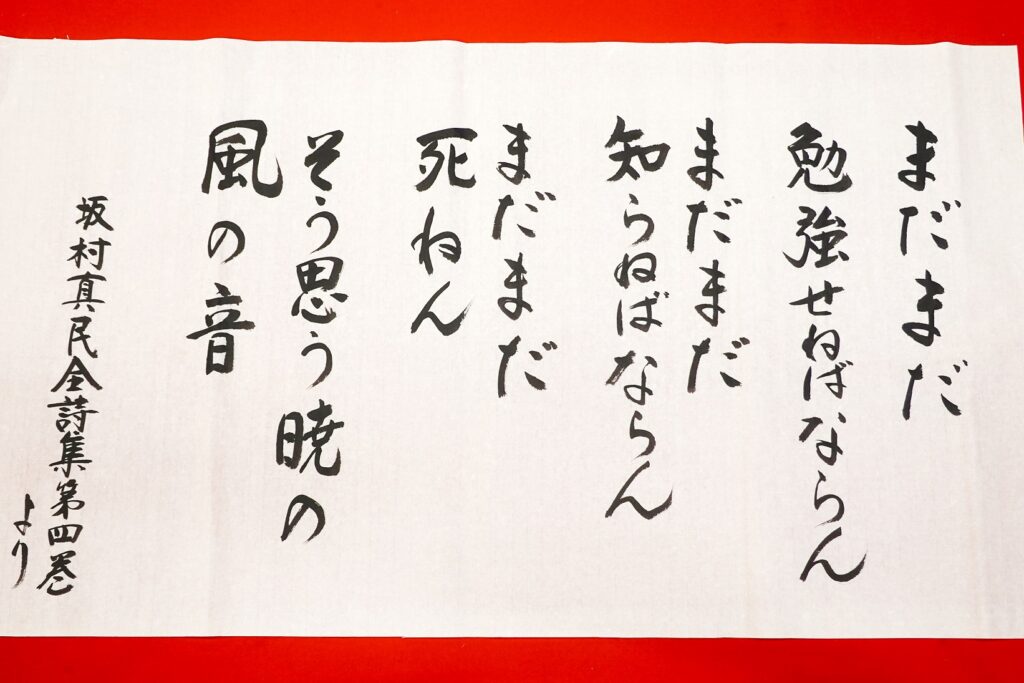 まだまだ
勉強せねばならん
まだまだ
知らねばならん
まだまだ
死ねん
そう思う暁の
風の音
坂村真民全詩集第四巻
より